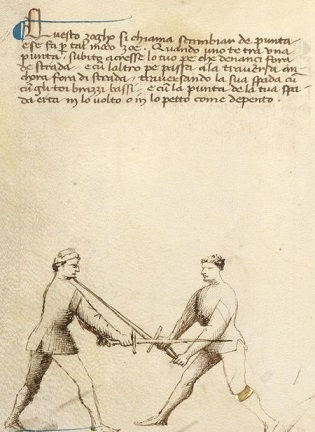 Questo zogho si chiama scambiar de punta
e se fa per tal modo zoe. Quando uno te tra una
punta subito acresse lo tuo pe che denanci fora
de strada e cu laltro pe passa a la traversa an
chora fora di strada traversando la sua spada cu
cu gli toi brazzi bassi e cu la punta de la tua spa
da erta in lo volto o in lo petto come depento.